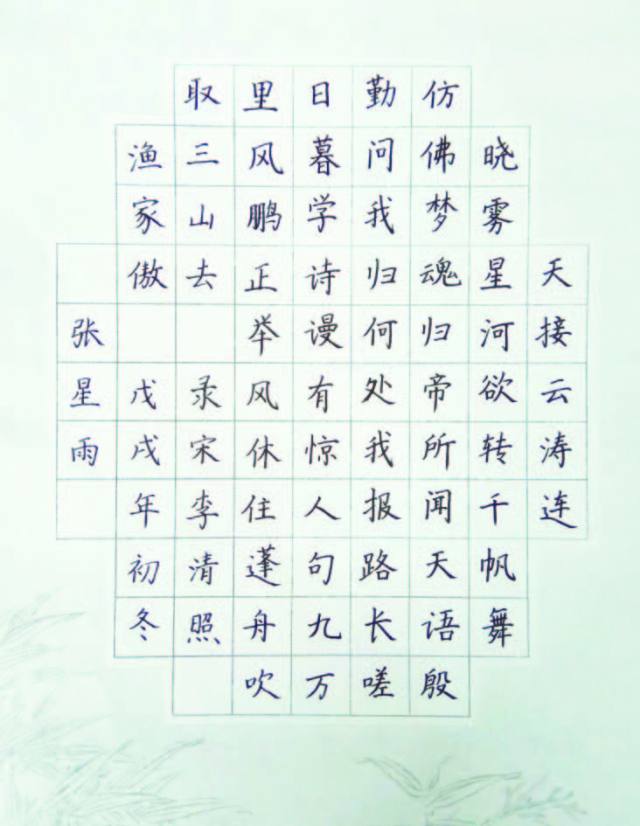 天接云涛连
晓雾星河欲转千帆舞
仿佛梦魂归帝所闻天语殷
勤问我归何处我报路长嗟
日暮学诗谩有惊人句九万
里风鹏正举风休住蓬舟吹
取三山去 录宋李清照
渔家傲 戊戌年初冬
张星雨